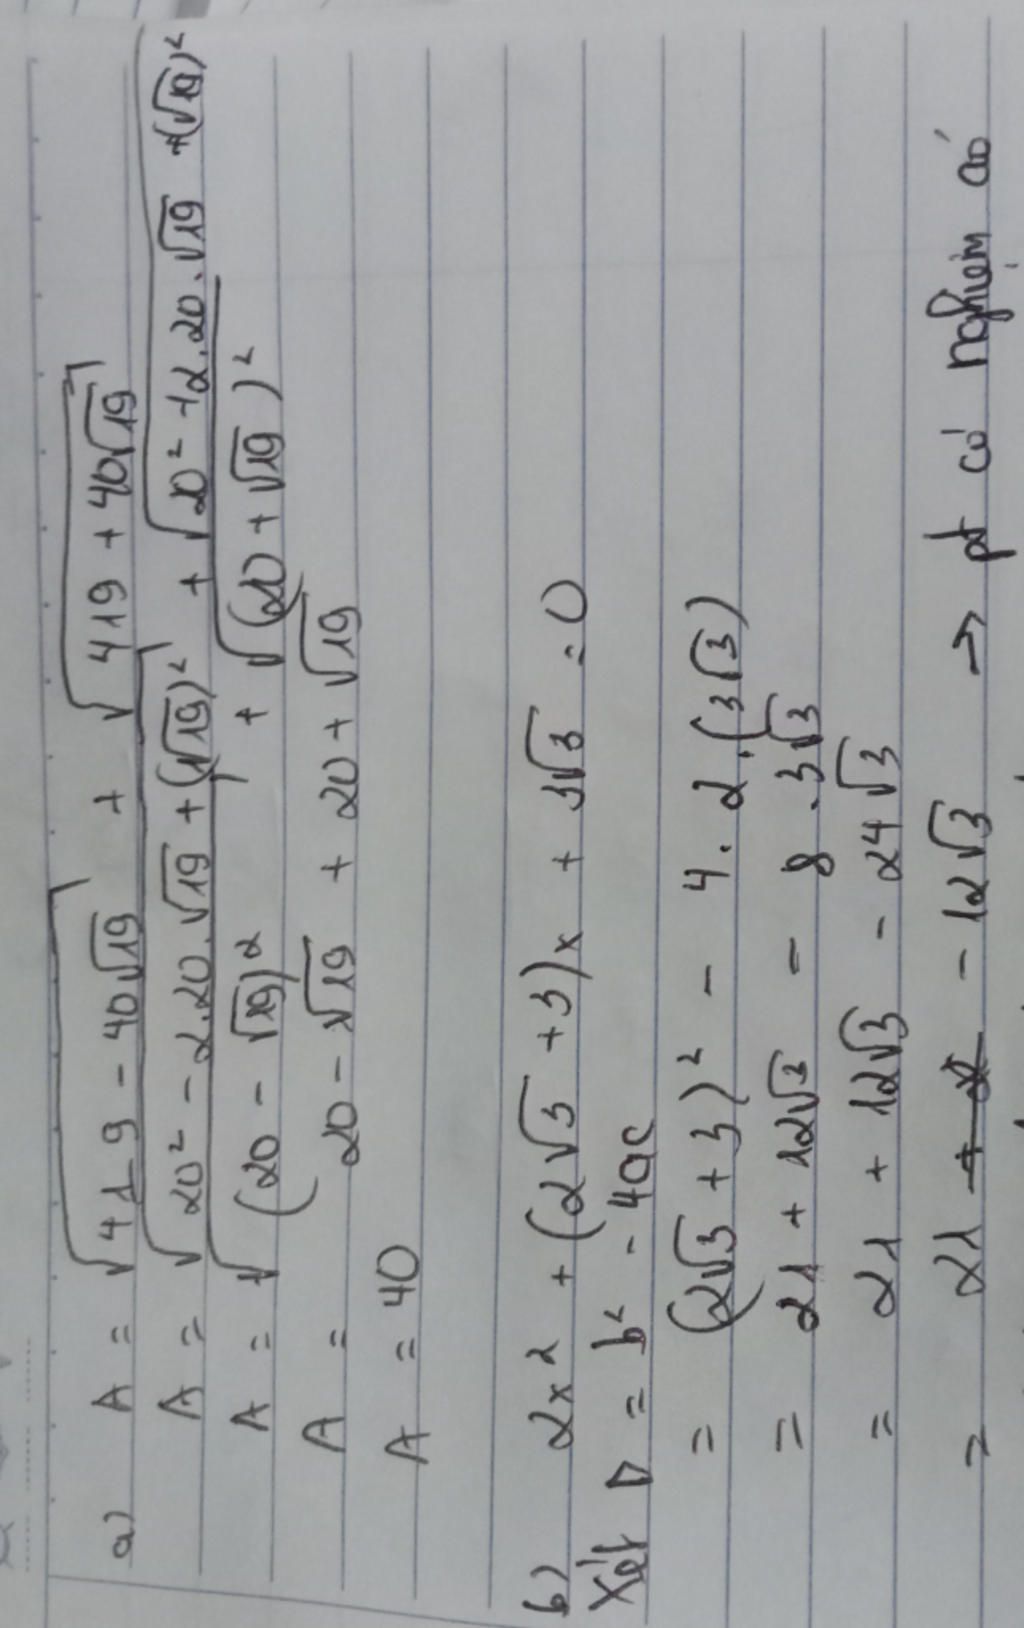 a) A = √(419 - 40√19) + √(419 + 40√19)
A = √(20² - 2.20.√19 + (√19)²) + √(20² + 2.20.√19 + (√19)²)
A = √((20 - √19)²) + √((20 + √19)²)
A = 20 - √19 + 20 + √19
A = 40
b) 2x² + (2√3 + 3)x + 3√3 = 0
Xét Δ = b² - 4ac
= (2√3 + 3)² - 4.2.(3√3)
= 21 + 12√3 - 8.3√3
= 21 + 12√3 - 24√3
= 21 - 12√3 → pt có nghiệm